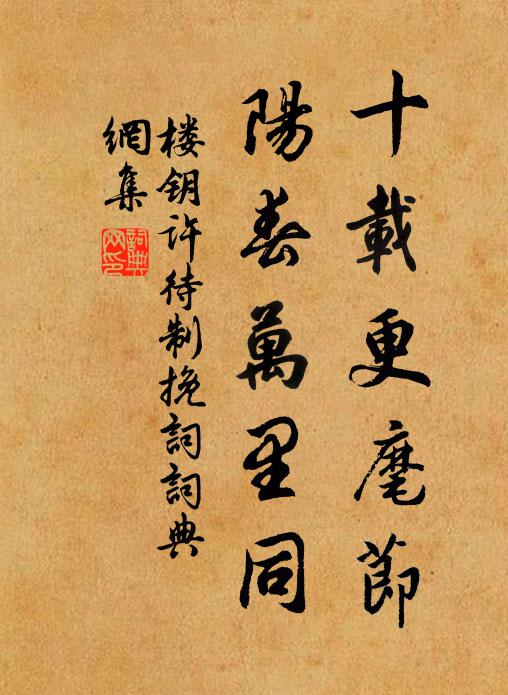 十載更麾節
陽春萬里同
楼钥许待制挽詞詞典
網集
詞典
网印